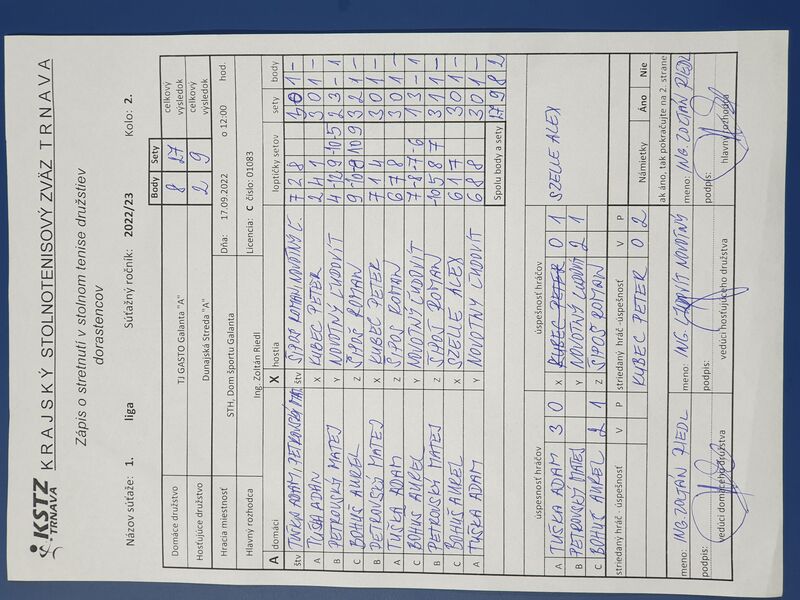 KSTZ TRNAVA KRAJSKÝ STOLNOTENISOVÝ ZVÄZ TRNAVA
Zápis o stretnutí v stolnom tenise družstiev
dorastencov
Názov súťaže: 1. liga Súťažný ročník: 2022/23 Kolo: 2.
Body Sety
Domáce družstvo TJ GASTO Galanta "A" 8 27 celkový výsledok
Hosťujúce družstvo Dunajská Streda "A" 2 9 celkový výsledok
Hracia miestnosť STH, Dom športu Galanta Dňa: 17.09.2022 o 12:00 hod.
Hlavný rozhodca Ing. Zoltán Riedl Licencia: C číslo: 01083
A domáci X hostia loptičky setov sety body
štv TUŠKA ADAM, PETROVSKÝ MAT. štv ŠIPOŠ ROMAN NOVOTNÝ Ľ. 7 2 8 3 0 1 –
A TUŠKA ADAM X KUBEC PETER 2 4 1 3 0 1 –
B PETROVSKÝ MATEJ Y NOVOTNÝ ĽUDOVÍT 4 -12 9 -10 -5 2 3 – 1
C BOHUŠ AUREL Z ŠIPOŠ ROMAN 9 -10 -8 10 9 3 2 1 –
B PETROVSKÝ MATEJ X KUBEC PETER 7 1 4 3 0 1 –
A TUŠKA ADAM Z ŠIPOŠ ROMAN 6 7 8 3 0 1 –
C BOHUŠ AUREL Y NOVOTNÝ ĽUDOVÍT 7 -8 -7 -6 1 3 – 1
B PETROVSKÝ MATEJ Z ŠIPOŠ ROMAN -10 5 8 7 3 1 1 –
C BOHUŠ AUREL X SZELLE ALEX 6 1 7 3 0 1 –
A TUŠKA ADAM Y NOVOTNÝ ĽUDOVÍT 6 8 8 3 0 1 –
Spolu body a sety 27 9 8 2
úspešnosť hráčov úspešnosť hráčov
A TUŠKA ADAM 3 0 X KUBEC PETER 0 1 SZELLE ALEX
B PETROVSKÝ MATEJ Y NOVOTNÝ ĽUDOVÍT 2 1
C BOHUŠ AUREL 2 1 Z ŠIPOŠ ROMAN
striedaný hráč -úspešnosť V P striedaný hráč -úspešnosť V P
KUBEC PETER 0 2 Námietky Áno Nie
ak áno, tak pokračujte na 2. strane
meno: ING. ZOLTÁN RIEDL meno: ING. ĽUDOVÍT NOVOTNÝ meno: ING. ZOLTÁN RIEDL
podpis: podpis: podpis:
vedúci domáceho družstva vedúci hosťujúceho družstva hlavný rozhodca